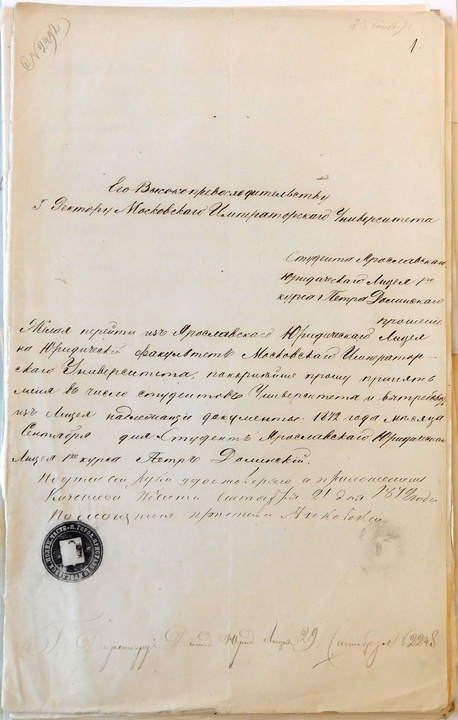 № 2492
1.
Его Высокопревосходительству
Г. Ректору Московскаго Императорскаго Университета
Студента Ярославскаго
Юридическаго Лицея 1го
курса Петра Долинскаго
прошение
Желая перейти изъ Ярославскаго Юридическаго Лицея
на Юридический факультетъ Московскаго Император-
скаго Университета, покорнейше прошу принять
меня въ число студентовъ Университета и вытребовать
изъ Лицея надлежащие документы. 1872 года месяца
Сентября дня Студентъ Ярославскаго Юридическаго
Лицея 1го курса Петръ Долинский.
руки удостоверяю приложениемъ
казенной печати Сентября 21 дня 1872 года
пристава
Г. Директору Юрид. Лицея 29 Сентября № 2248